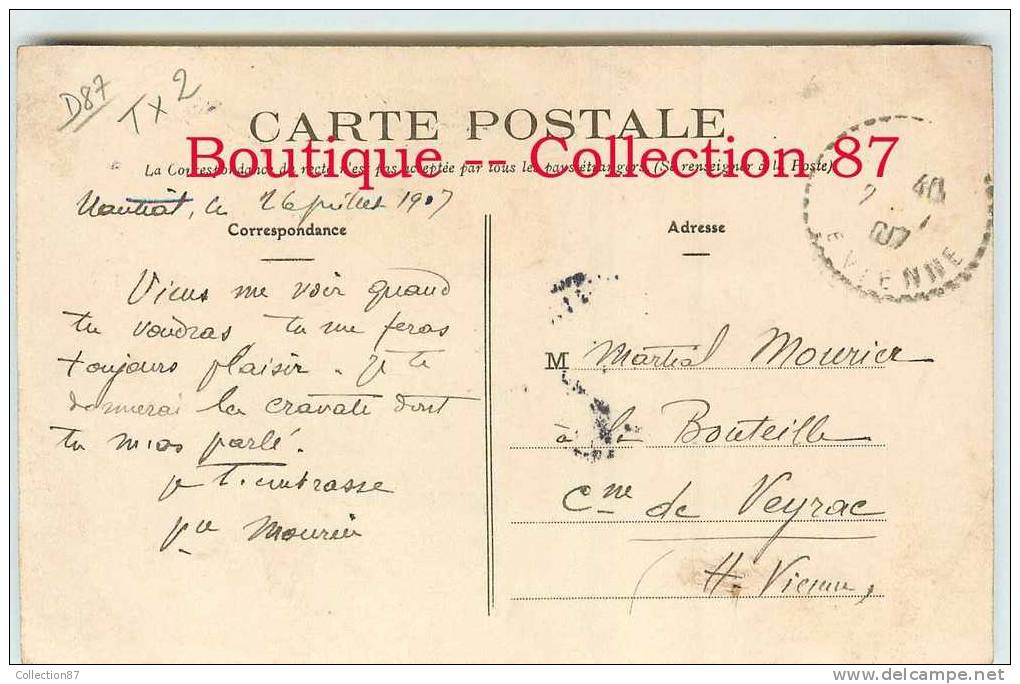 D87
TX 2
CARTE POSTALE
Boutique -- Collection 87
La Correspondance du recto n'est pas acceptée par tous les pays étrangers (Se renseigner à la Poste)
Nantiat, le 26 juillet 1907
Correspondance
Viens me voir quand
tu voudras tu me feras
toujours plaisir. je te
donnerai la cravate dont
tu m'as parlé.
je t'embrasse
Mourier
Adresse
M Martial Mourier
à la Bouteille
Cne de Veyrac
(Hte Vienne)
2 40
07
E VIENNE
Collection87
delcampe.net